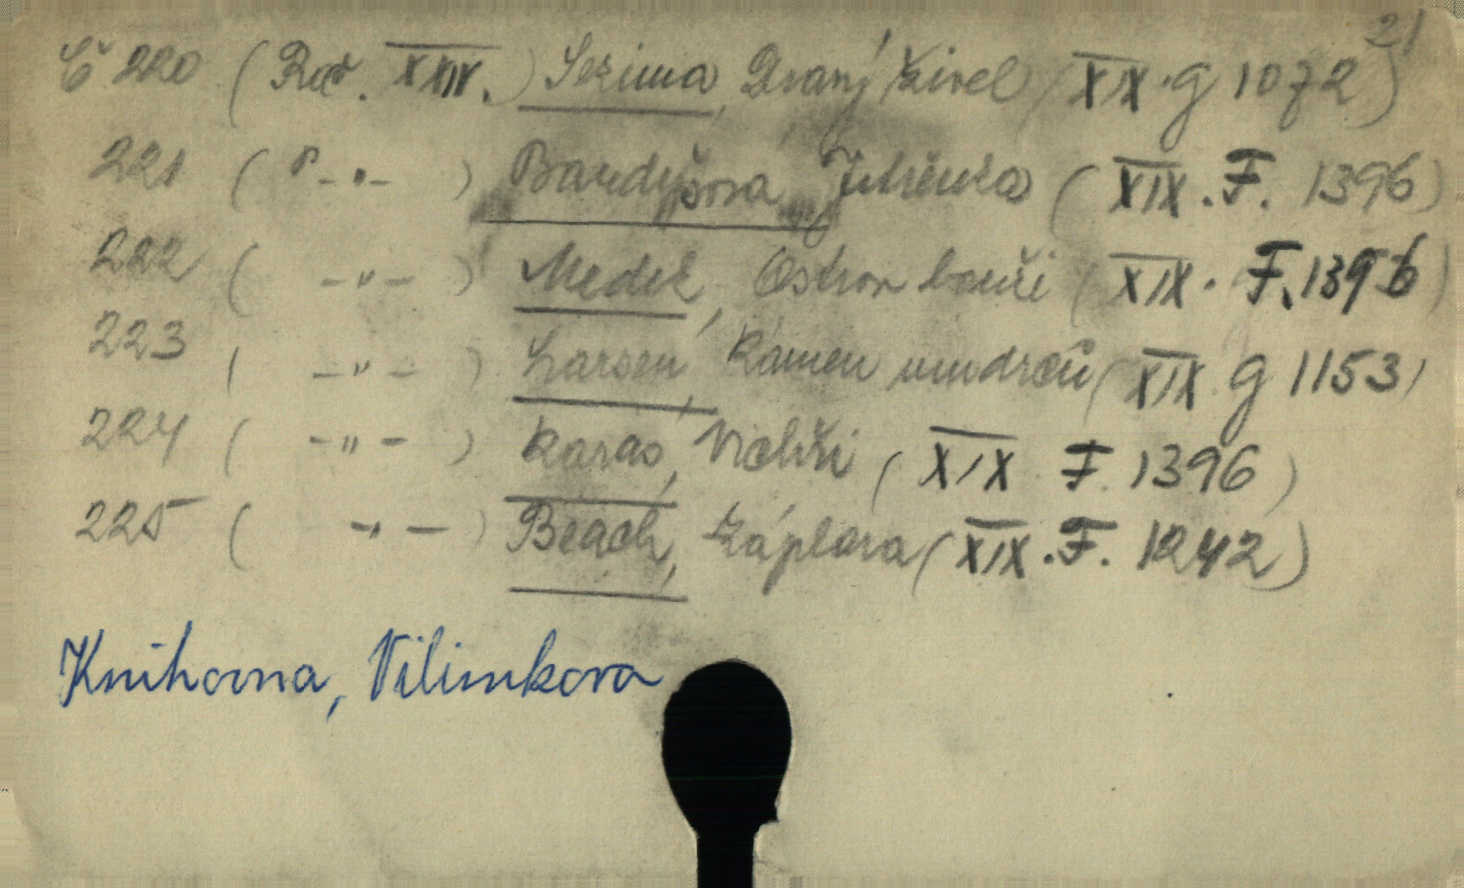 21
Č 220 (Roč. XXIX.) Sezima, Dravý živel (XIX. g 1072)
221 ( -„- ) Bardyšova, Jitřenka (XIX. F. 1396)
222 ( -„- ) Medek, Ostrov bouři (XIX. F. 1396)
223 ( -„- ) Larsen, Kámen mudrců (XIX g 1153)
224 ( -„- ) Karas, Vichři (XIX F. 1396)
225 ( -„- ) Beach, Záplava (XIX. F. 1242)
Knihovna, Vilimkova